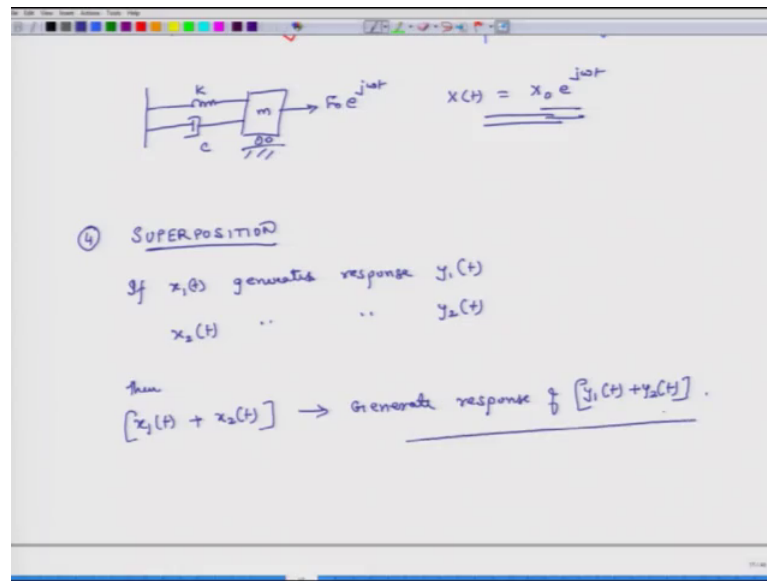 K
m
F₀ e^{jωt}
x(t) = x₀ e^{jωt}
c
④ SUPERPOSITION
If x₁(t) generates response y₁(t)
x₂(t) " " y₂(t)
then
[x₁(t) + x₂(t)] → Generate response of [y₁(t) + y₂(t)].